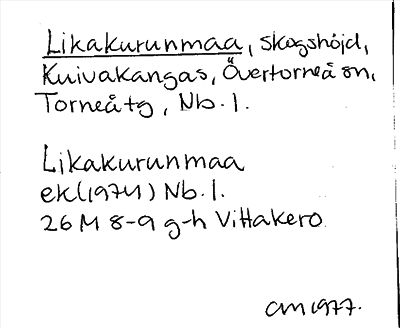 Likakurunmaa, skogshöjd,
Kuivakangas, Övertorneå sn,
Torneå tg, Nb. l.
Likakurunmaa
ek(1974) Nb. l.
26 M 8-9 g-h Vittakero
CM 1977.